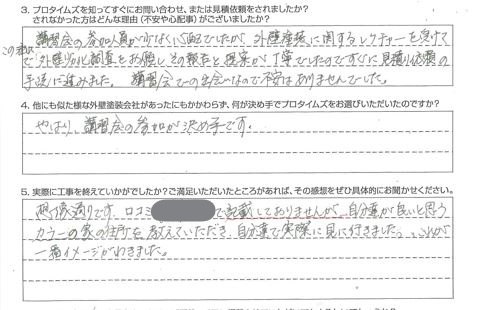 3. プロタイムズを知ってすぐにお問い合わせ、または見積依頼をされましたか?
されなかった方はどんな理由(不安や心配事)がございましたか?
講習会の参加人員が少なく心配でしたが、外壁塗装に関するレクチャーを受けて
で外壁劣化調査をお願い、その報告と提案が丁寧でしたのですぐに見積り依頼の
手続に進みました。講習会での出会いなので不安はありませんでした。
4. 他にも似た様な外壁塗装会社があったにもかかわらず、何が決め手でプロタイムズをお選びいただいたのですか?
やはり、講習会の参加が決め手です。
5. 実際に工事を終えていかがでしたか?ご満足いただいたところがあれば、その感想をぜひ具体的にお聞かせください。
想像通りです。口コミ で記載しておりませんが、自分達が良いと思う
カラーの家の住所を教えていただき、自分達で実際に見に行きました。これが
一番イメージがわきました。